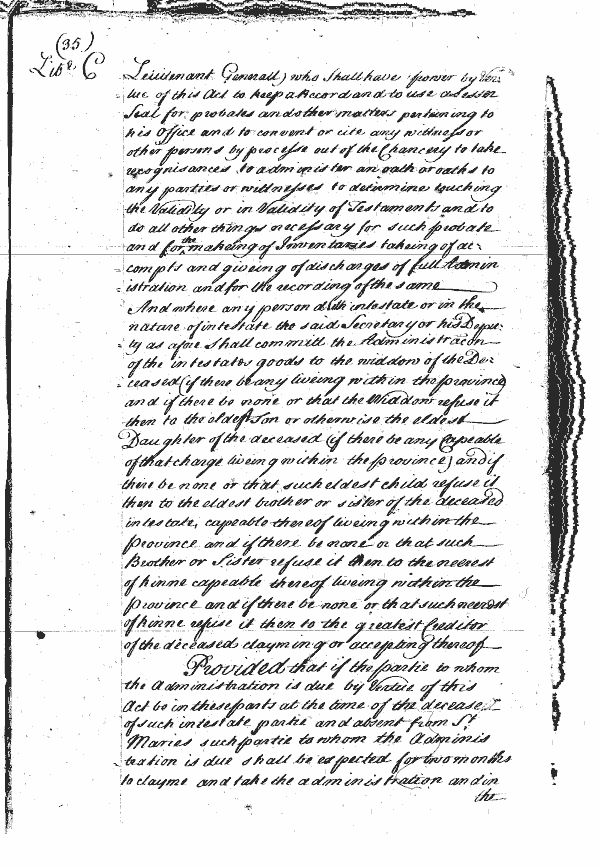 (35)
Libr. C
Leiutenant Generall) who shall have power by Ver
tue of this Act to keep a Record and to use a lesser
Seal for probates and other matters perteining to
his Office and to convent or cite any witness or
other persons by processe out of the Chancery to take
recognisances to administer an oath or oaths to
any parties or wittnesses to determine touching
the Validity or in Validity of Testaments and to
do all other things necessary for such probate
and for the makeing of Inventaries takeing of ac:
compts and giveing of discharges of full Admin
istration and for the recording of the same
And where any person dyeth intestate or in the
nature of intestate the said Secretary or his Depu:
ty as afore shall committ the Administracon
of the intestates goods to the widdow of the De:
ceased (if there be any liveing within the province
and if there be none or that the Widdow refuse it
then to the eldest Son or otherwise the eldest
Daughter of the deceased (if there be any Capeable
of that charge liveing within the province) and if
there be none or that such eldest child refuse it
then to the eldest brother or sister of the deceased
intestate, capeable thereof liveing within the
Province and if there be none or that such
Brother or Sister refuse it then to the neerest
of kinne capeable thereof liveing within the
province and if there be none or that such neerest
of kinne refuse it then to the greatest Creditor
of the deceased clayming or accepting thereof
Provided that if the partie to whom
the Administration is due by Vertue of this
Act be in these parts at the time of the decease
of such intestate partie and absent from St
Maries such partie to whom the Adminis
tration is due shall be expected for two months
to clayme and take the administration and in
the